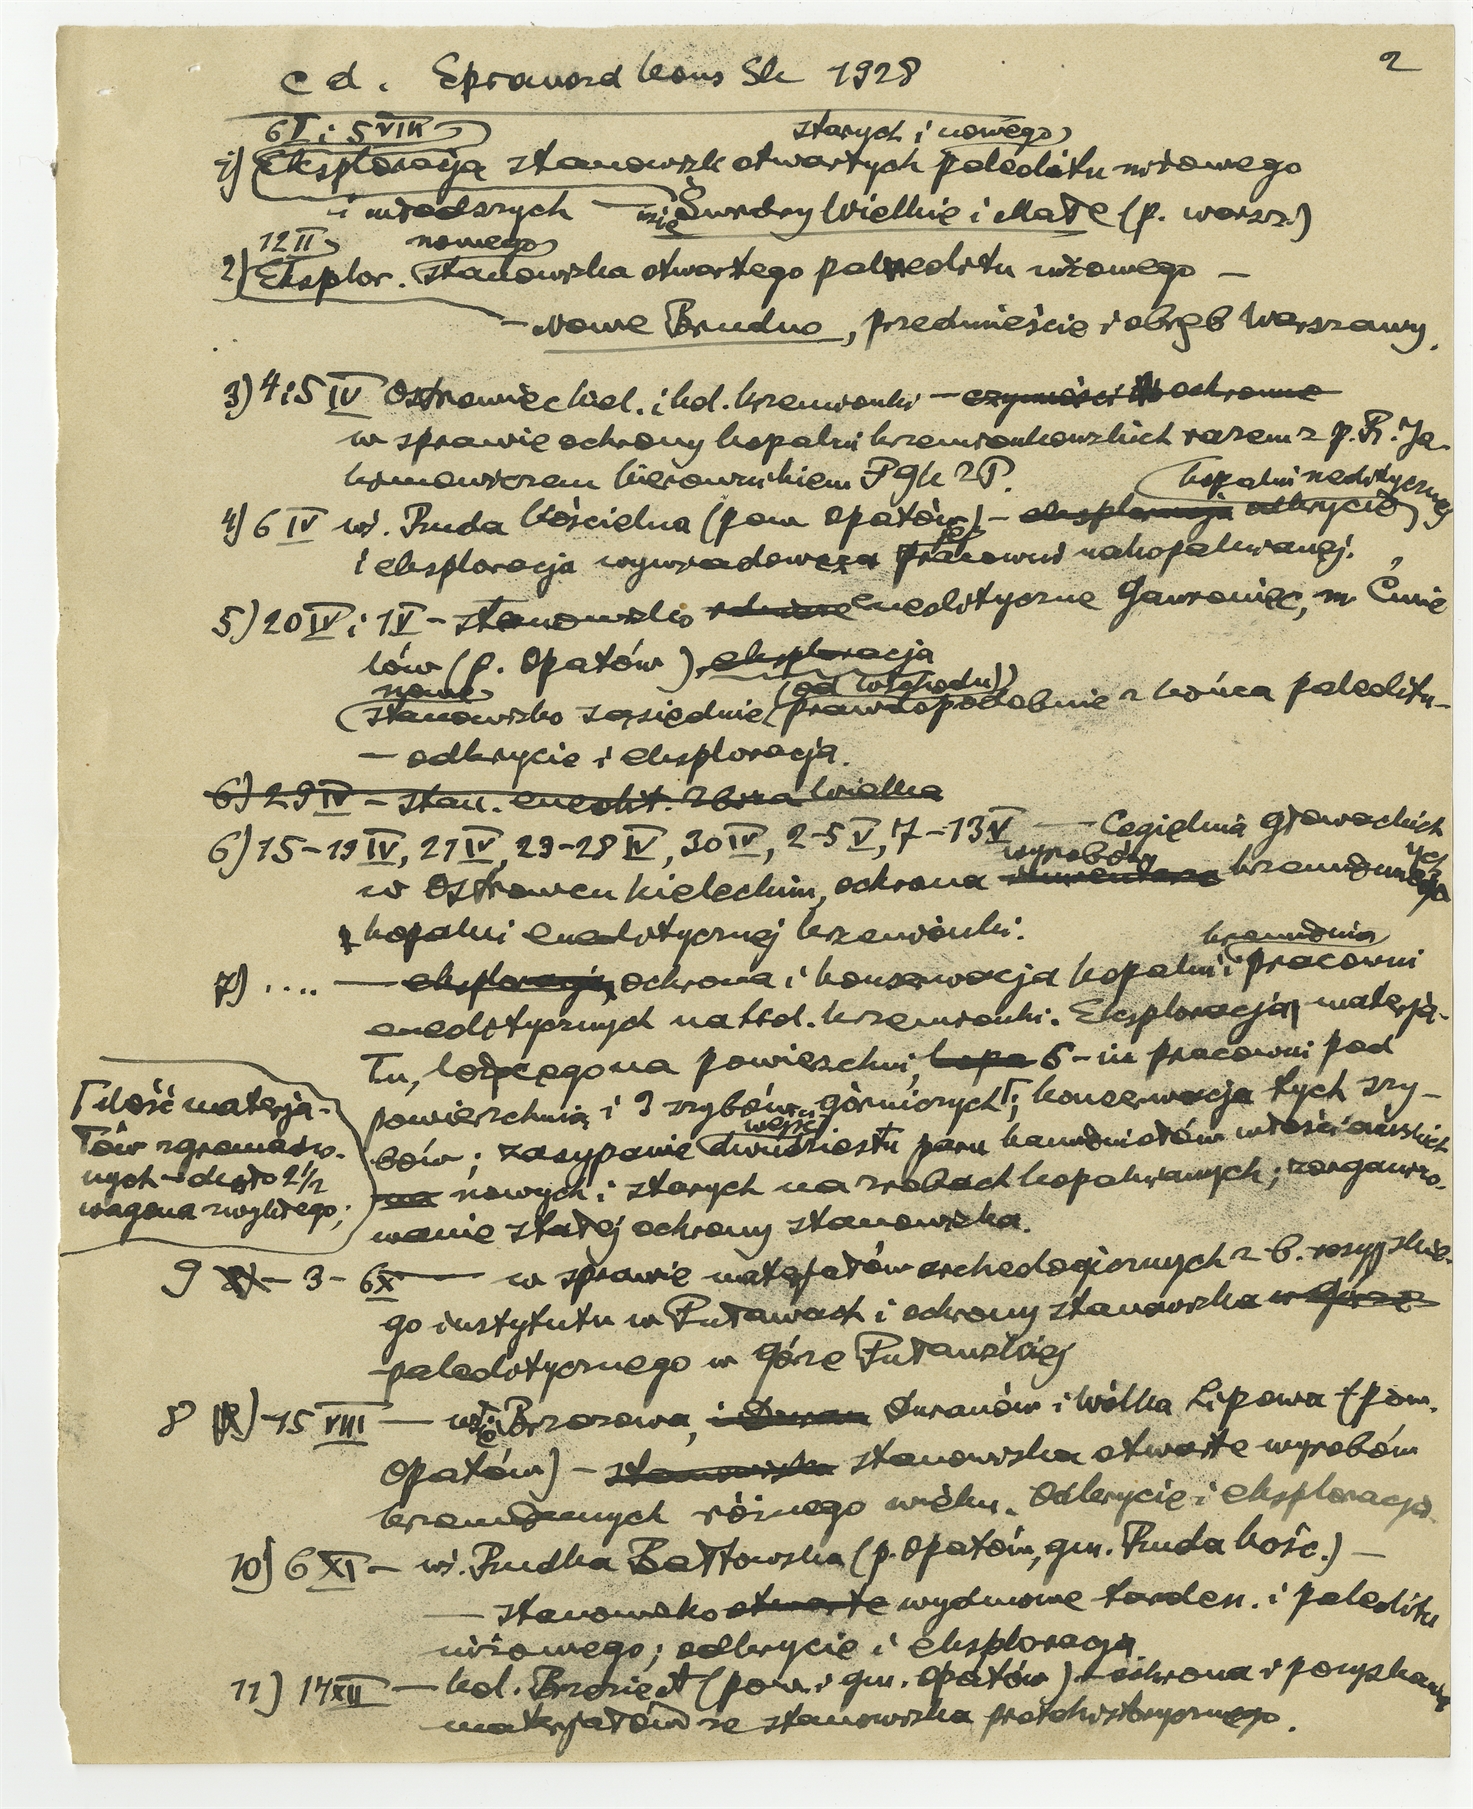 2
c d. Sprawozd kons Sk 1928
6 I i 5 VIII starych i nowego
1) Eksploracja stanowisk otwartych paleolitu niżowego
i młodszych — Świdry Wielkie i Małe (p. warsz.)
12 II nowego
2) Eksplor. stanowiska otwartego paleolitu niżowego —
— Nowe Brudno, przedmieście i obręb Warszawy.
3) 4 i 5 IV Ostrowiec kiel. i kol. krzemionki — czynności ochronne
w sprawie ochrony kopalni krzemionkowskich razem z p. R. Ja-
kimowiczem kierownikiem PGK ZP.
kopalni neolitycznej
4) 6 IV wś. Ruda Kościelna (pow Opatów) — eksploracja odkrycie
i eksploracja wywiadowcza pracowni nakopalnianej.
5) 20 IV i 1 V — stanowisko eneolityczne Gawroniec, m. Ćmie
lów (p. Opatów), eksploracja
nowe (od wschodu)
stanowisko sąsiednie prawdopodobnie z końca paleolitu —
— odkrycie i eksploracja.
6) 29 IV — stan. eneolit. Zbrza Wielka
6) 15-19 IV, 21 IV, 23-28 IV, 30 IV, 2-5 V, 7-13 V — Cegielnia Głowackich
wyrobów nych
w Ostrowcu kieleckim, ochrona krzemien
z kopalni eneolitycznej krzemionki.
krzemienia
7) .... — eksploracja, ochrona i konserwacja kopalni i pracowni
eneolitycznych na kol. krzemionki. Eksploracja materja-
łu, leżącego na powierzchni, kopa 6-iu pracowni pod
powierzchnią i 9 szybów górniczych; konserwacja tych szy-
wejść
bów; zasypanie dwudziestu paru kamieniołomów włościańskich
na nowych i starych na zrobach kopalnianych; zorganizo-
wanie stałej ochrony stanowiska.
Ilość materja-
łów zgromadzo-
nych — około 2 1/2
wagona zwykłego;
9 — 3-6 X — w sprawie materjałów archeologicznych z b. rosyjskie-
go instytutu w Puławach i ochrony stanowiska w Górze
paleolitycznego w Górze Puławskiej
8 — 15 VIII — wś Brzozowa, i Duran Duranów i Wólka Lipowa (pow.
Opatów) — stanowiska stanowiska otwarte wyrobów
krzemiennych różnego wieku. Odkrycie i eksploracja.
10) 6 XI — wś. Rudka Bałtowska (p. Opatów, gm. Ruda Kośc.) —
— stanowisko otwarte wydmowe tarden. i paleolitu
niżowego; odkrycie i eksploracja
11) 14 XII — kol. Brzozie (pow. i gm. Opatów) — ochrona i pozyskanie
materjałów ze stanowiska protohistorycznego.